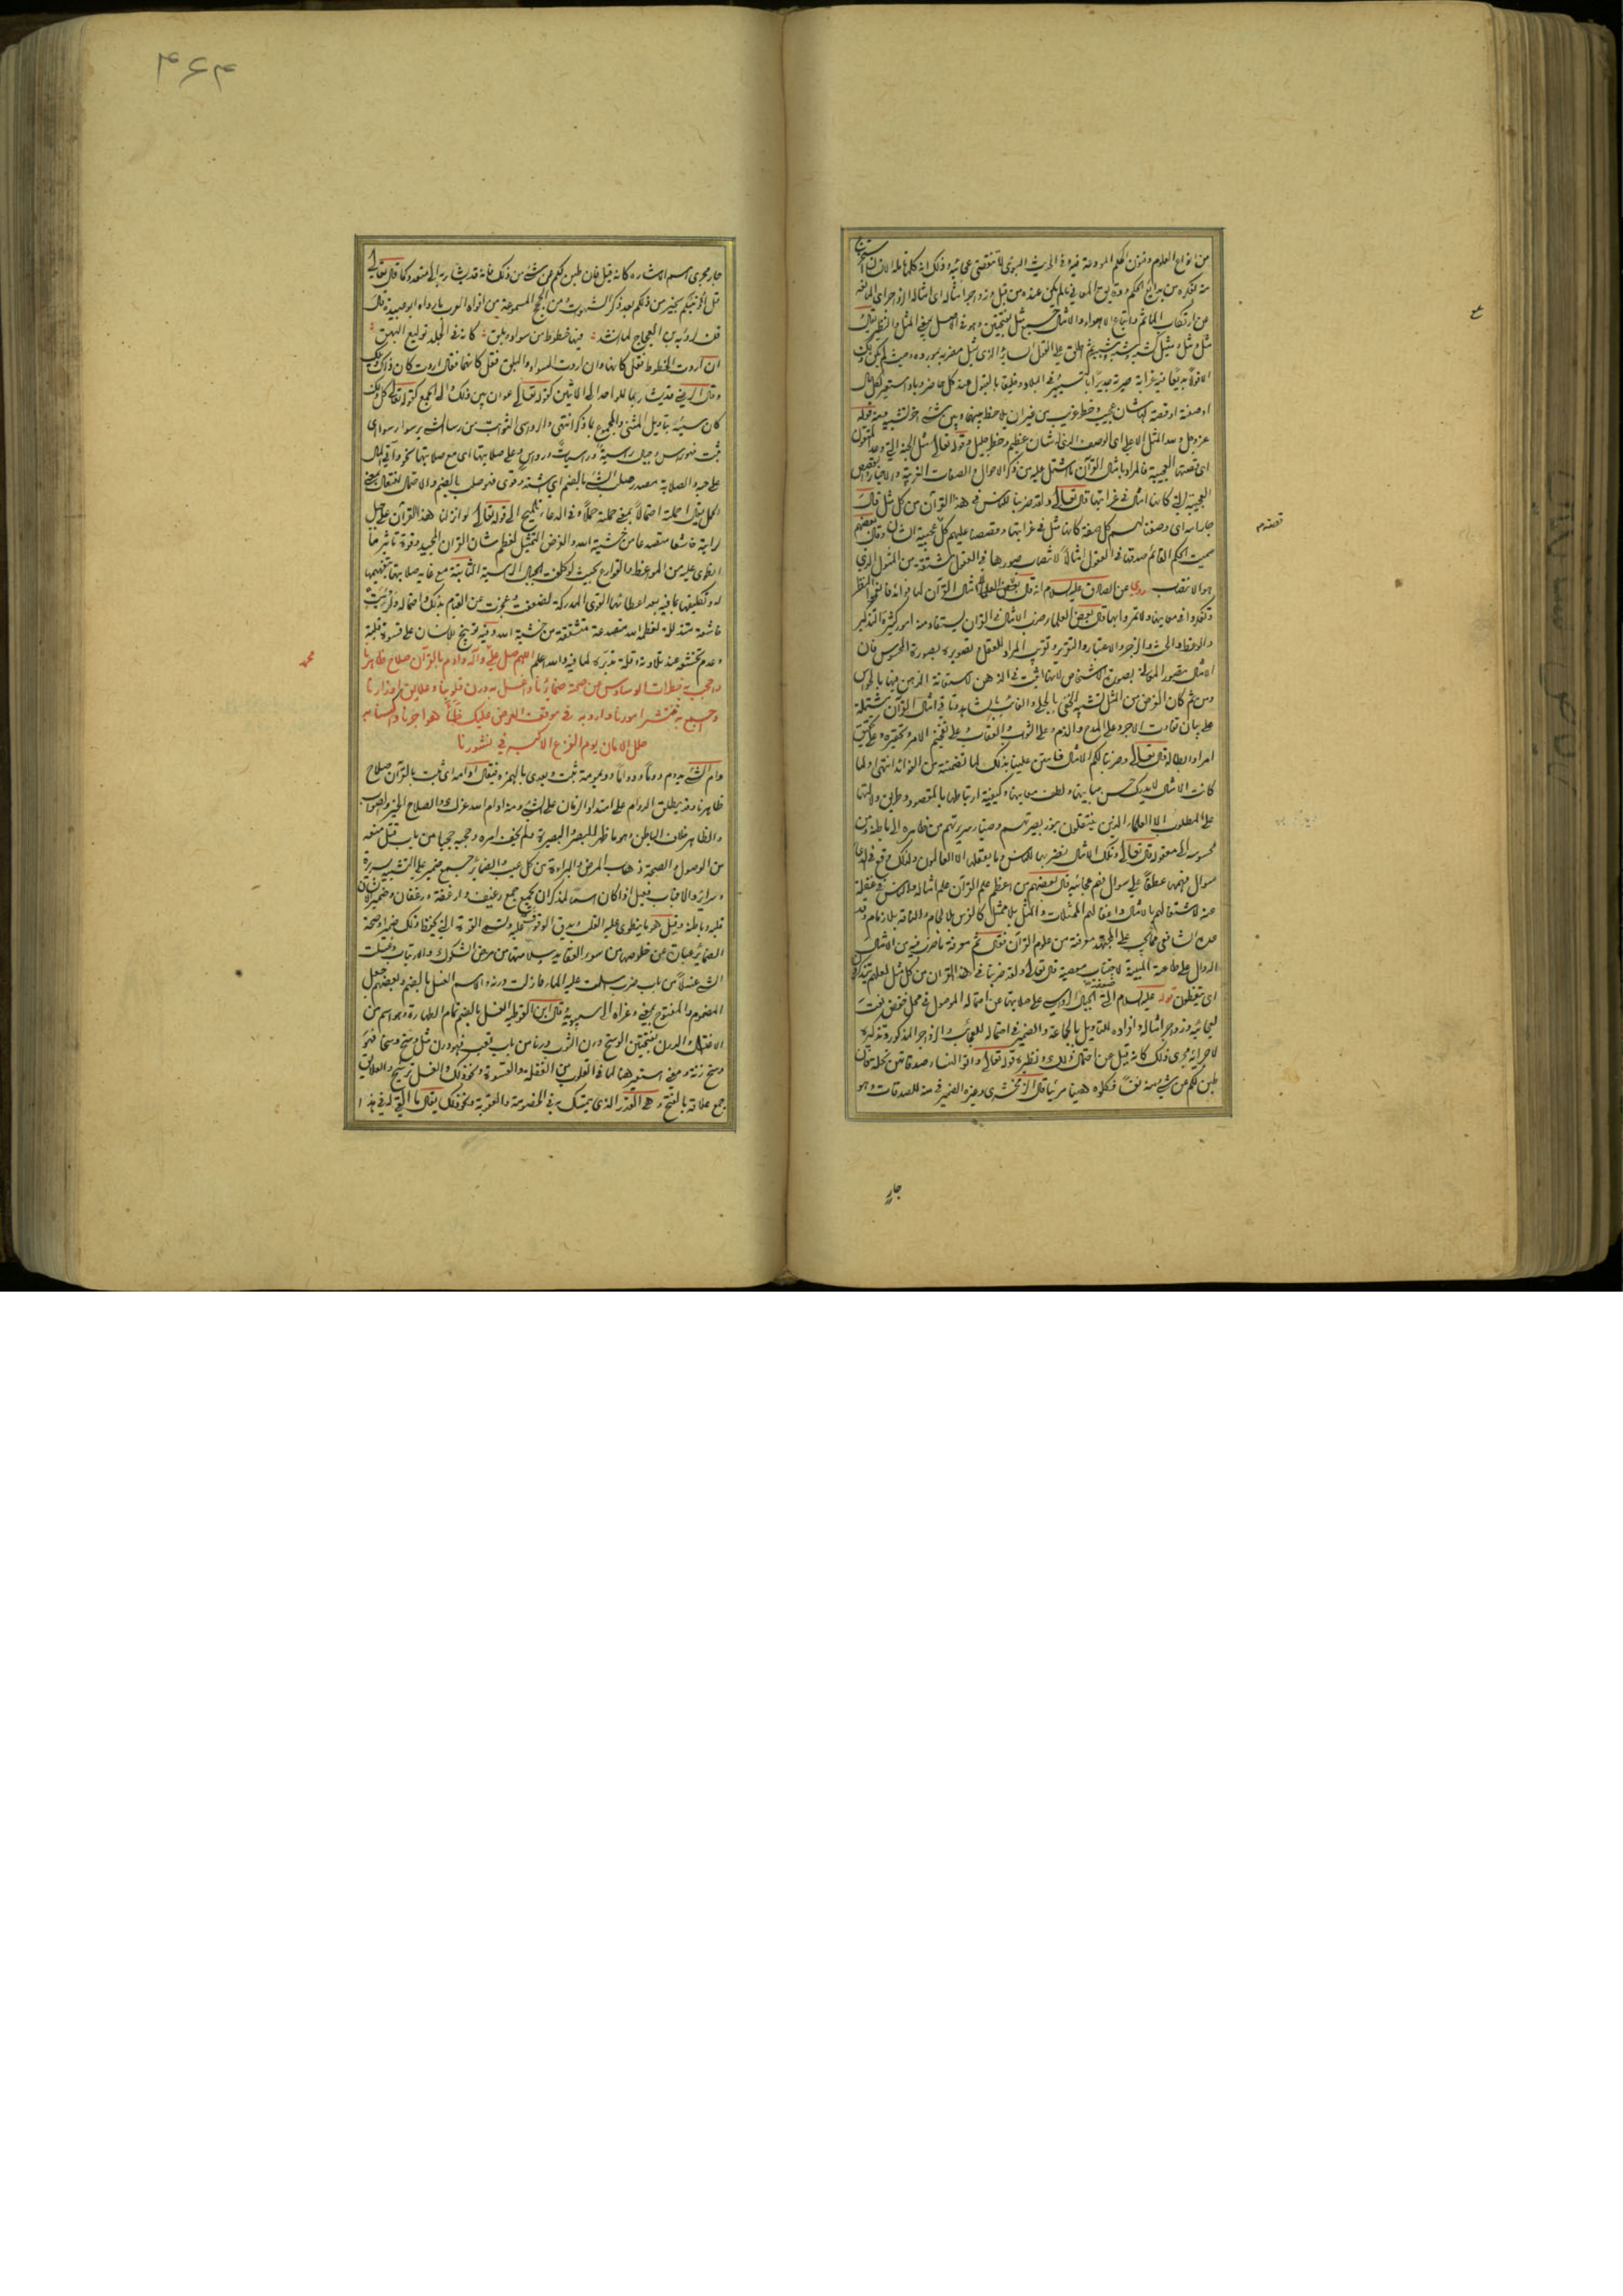 من انواع العلوم وفنون الحكم المودعة فيه وفى الحديث النبوى لا تنقضى عجائبه وذلك انه كلما تامله الانسان استخرج
منه بفكره من بدائع الحكم ودقايق المعانى ما لم يكن عنده من قبل وزواجر امثاله اى امثاله الزواجر اى المانعة
عن ارتكاب المآثم واتباع الاهواء والامثال جمع مثل بفتحتين وهو فى الاصل بمعنى المثل والنظير يقال
مثل ومثل ومثيل كشبه وشبه وشبيه ثم اطلق على القول السائر الذى يمثل مضربه بمورده وحيث لم يكن ذلك
الا قولا بديعا فيه غرابة صيرته جديرا بالتسيير فى البلاد وخليقا بالقبول عند كل حاضر وباد استعير لكل حال
او صفة او قصة لها شان عجيب وخطر غريب من غير ان يلاحظ بينها وبين شئ آخر تشبيه ومنه قوله
عز وجل ولله المثل الاعلى اى الوصف الذى له شان عظيم وخطر جليل وقوله تعالى مثل الجنة التى وعد المتقون
اى قصتها العجيبة فالمراد بامثال القرآن ما اشتمل عليه من ذكر الاحوال والصفات الغريبة والاخبار والقصص
العجيبة التى كانها امثال فى غرابتها قال تعالى ولقد ضربنا للناس فى هذا القرآن من كل مثل قال
جار الله اى وصفنا لهم كل صفة كانها مثل فى غرابتها وقصصنا عليهم كل عجيبة الشان وقال بعضهم
سميت الحكم القائم صدقها فى العقول امثالا لانتصاب صورها فى العقول مشتقة من المثول الذى
هو الانتصاب روى عن الصادق عليه السلام انه قال بعض العلماء امثال القرآن لها فوائد فانعموا النظر
وتفكروا فى معانيها ولا تمروا بها وقال بعض العلماء ضرب الامثال فى القرآن يستفاد منه امور كثيرة التذكير
والوعظ والحث والزجر والاعتبار والتقرير وتقريب المراد للعقل وتصويره بصورة المحسوس فان
الامثال تصور المعانى بصورة الاشخاص لانها اثبت فى الاذهان لاستعانة الذهن فيها بالحواس
ومن ثم كان الغرض من المثل تشبيه الخفى بالجلى والغائب بالشاهد وتاتى امثال القرآن مشتملة
على بيان تفاوت الاجر وعلى المدح والذم وعلى الثواب والعقاب وعلى تفخيم الامر وتحقيره وعلى تحقيق
امر او ابطاله قال تعالى وضربنا لكم الامثال فامتن علينا بذلك لما تضمنته من الفوائد انتهى ولما
كانت الامثال لا يدرك حسن مبانيها ولطف معانيها وكيفية ارتباطها بالمقصود وطريق دلالتها
على المطلوب الا العلماء الذين ينتقلون بنور بصيرتهم وصفاء سريرتهم من ظاهره الى باطنه ومن
محسوسه الى معقوله قال تعالى وتلك الامثال نضربها للناس وما يعقلها الا العالمون ولذلك وقع فى الدعاء
سوال فهمها عطفا على سوال فهم عجائبه قال بعضهم من اعظم علم القرآن علم امثاله والناس فى غفلة
عنه لاشتغالهم بالامثال واغفالهم الممثلات والمثل بلا ممثل كالفرس بلا لجام والناقة بلا زمام وقد
عده الشافعى مما يجب على المجتهد معرفته من علوم القرآن فقال ثم معرفة ما ضرب فيه من الامثال
الدوال على طاعته المبينة لاجتناب معصيته قال تعالى ولقد ضربنا فى هذا القرآن من كل مثل لعلهم يتذكرون
اى يتعظون قوله عليه السلام التى ضعفت الجبال الرواسى على صلابتها عن احتماله الموصول فى محل خفض نعت
لعجائبه وزواجر امثاله وافراده للتاويل بالجماعة والضمير فى احتماله للعجائب والزواجر المذكورة وتذكيره
لاجرائه مجرى ذلك كانه قيل عن احتمال ذلك ونظيره قوله تعالى وآتوا النساء صدقاتهن نحلة فان
طبن لكم عن شئ منه نفسا فكلوه هنيئا مريئا قال الزمخشرى وغيره الضمير فى منه للصدقات وهو
جار
قصدوم
۴۶۴
جار مجرى اسم الاشارة كانه قيل فان طبن لكم عن شئ من ذلك فانه قد يشار به الى متعدد وكما قال تعالى
قل اؤنبئكم بخير من ذلكم بعد ذكر الشهوات ومن الحجج المسموعة من افواه العرب ما رواه ابو عبيدة قال
قلت لرؤبة بن العجاج لما انشد فيها خطوط من سواد وبلق كانه فى الجلد توليع البهق
ان اردت الخطوط فقل كانها وان اردت السواد والبلق فقل كانهما فقال اردت كان ذلك ويلك
وقال الرضى قد يشار بما للواحد الى الاثنين كقوله تعالى عوان بين ذلك والى الجمع كقوله تعالى كل ذلك
كان سيئه بتاويل المثنى والمجموع بما ذكر انتهى والرواسى الثوابت من رسا الشئ يرسو رسوا اى
ثبت فهو راس وجبال راسية وراسيات ورواس وعلى صلابتها اى مع صلابتها نحو وآتى المال
على حبه والصلابة مصدر صلب الشئ بالضم اى اشتد وقوى فهو صلب بالضم والاحتمال افتعال بمعنى
الحمل يقال احمله احتمالا بمعنى حمله حملا وفى الدعاء تلميح الى قوله تعالى لو انزلنا هذا القرآن على جبل
لرايته خاشعا متصدعا من خشية الله والغرض التمثيل لعظم شان القرآن المجيد وقوة تاثير ما
انطوى عليه من المواعظ والقوارع بحيث لو كلفت الجبال الراسية الثابتة مع غاية صلابتها بتفهيمها
له وتكليفها بما فيه بعد اعطائها القوى المدركة لضعفت وعجزت عن القيام بذلك واحتماله ولرئيت
خاشعة متذللة لعظمة الله متصدعة متشققة من خشية الله وفيه توبيخ للانسان على قسوة قلبه
وعدم تخشعه عند تلاوته وقلة تدبره لما فيه والله اعلم اللهم صل على محمد وآله وادم بالقرآن صلاح ظاهرنا
واحجب به خطرات الوساوس عن صحة ضمائرنا واغسل به درن قلوبنا وعلايق اوزارنا
واجمع به منتشر امورنا وارو به فى موقف العرض عليك ظمأ هواجرنا واكسنا به
حلل الامان يوم الفزع الاكبر فى نشورنا
دام الشئ يدوم دوما ودواما وديمومة ثبت ويعدى بالهمزة فيقال ادامه اى ثبت بالقرآن صلاح
ظاهرنا وقد يطلق الدوام على امتداد الزمان على الشئ ومنه ادام الله عزك والصلاح الخير والصواب
والظاهر خلاف الباطن وهو ما ظهر للبصر والبصيرة فلم يخف امره وحجبه حجبا من باب قتل منعه
من الوصول والصحة ذهاب المرض والبراءة من كل عيب والضمائر جمع ضمير على التشبيه بسريرة
وسراير والا فباب فعيل اذا كان اسما لمذكر ان يجمع جمع رغيف وارغفة ورغفان وضمير الانسان
قلبه وباطنه وقيل هو ما ينطوى عليه القلب ويدق الوقوف عليه وتسمى القوة التى يحفظ ذلك ضميرا وصحة
الضمائر عبارة عن خلوصها من سوء العقايد وسلامتها من مرض الشكوك والارتياب وغسلت
الشئ غسلا من باب ضرب اسلت عليه الماء فازلت درنه والاسم الغسل بالضم وبعضهم يجعل
المضموم والمفتوح بمعنى وعزاه الى سيبويه وقال ابن القوطية الغسل بالضم تمام الطهارة وهو اسم من
الاغتسال والدرن بفتحتين الوسخ ودرن الثوب درنا من باب تعب فهو درن مثل وسخ وسخا فهو
وسخ زنة ومعنى استعير هنا لما فى القلوب من الغفلة والقسوة ونحو ذلك والغسل ترشيح والعلايق
جمع علاقة بالفتح وهى القدر الذى يتمسك به فى الخصومة والعقوبة ونحو ذلك يقال ما ابقى لى فى هذا
محمد